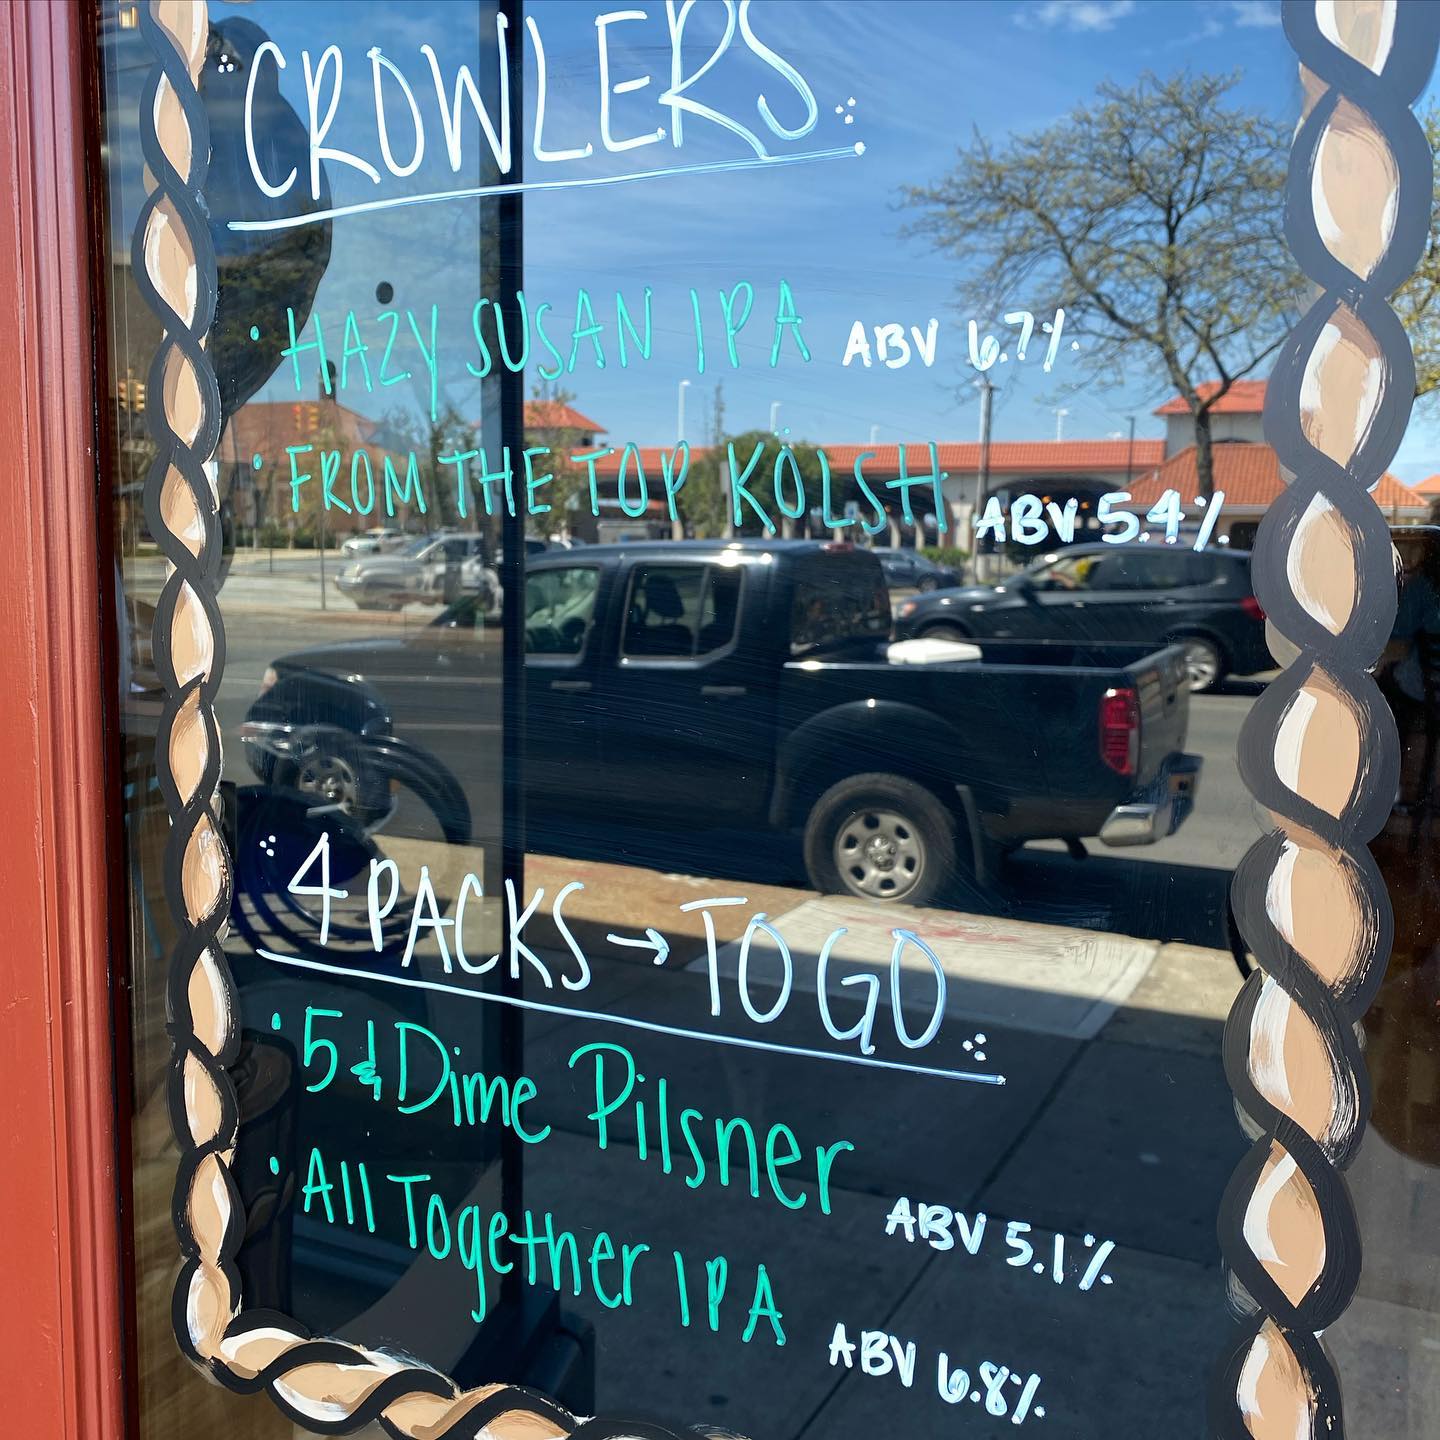 CROWLERS
• HAZY SUSAN IPA ABV 6.7%
• FROM THE TOP KÖLSH ABV 5.4%
4 PACKS → TO GO
• 5 & Dime Pilsner ABV 5.1%
• All Together IPA ABV 6.8%